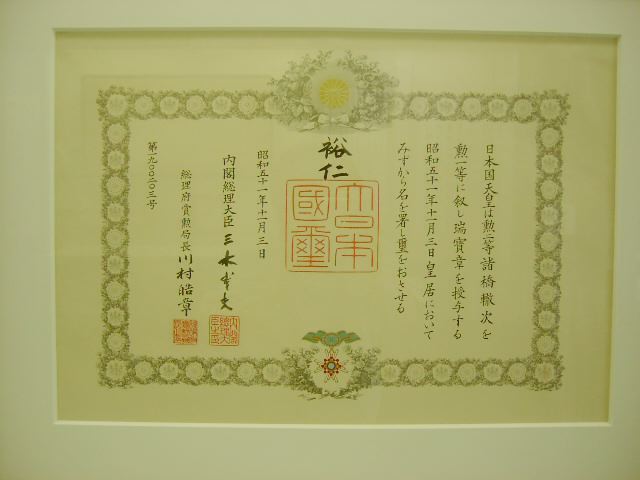 日本国天皇は勲一等諸橋轍次を
勲一等に叙し瑞寶章を授与する
昭和五十一年十一月三日皇居において
みずから名を署し璽をおさせる
裕仁
大日本國璽
昭和五十一年十一月三日
内閣総理大臣 三木武夫
総理府賞勲局長 川村皓章
第一九〇〇三〇三号